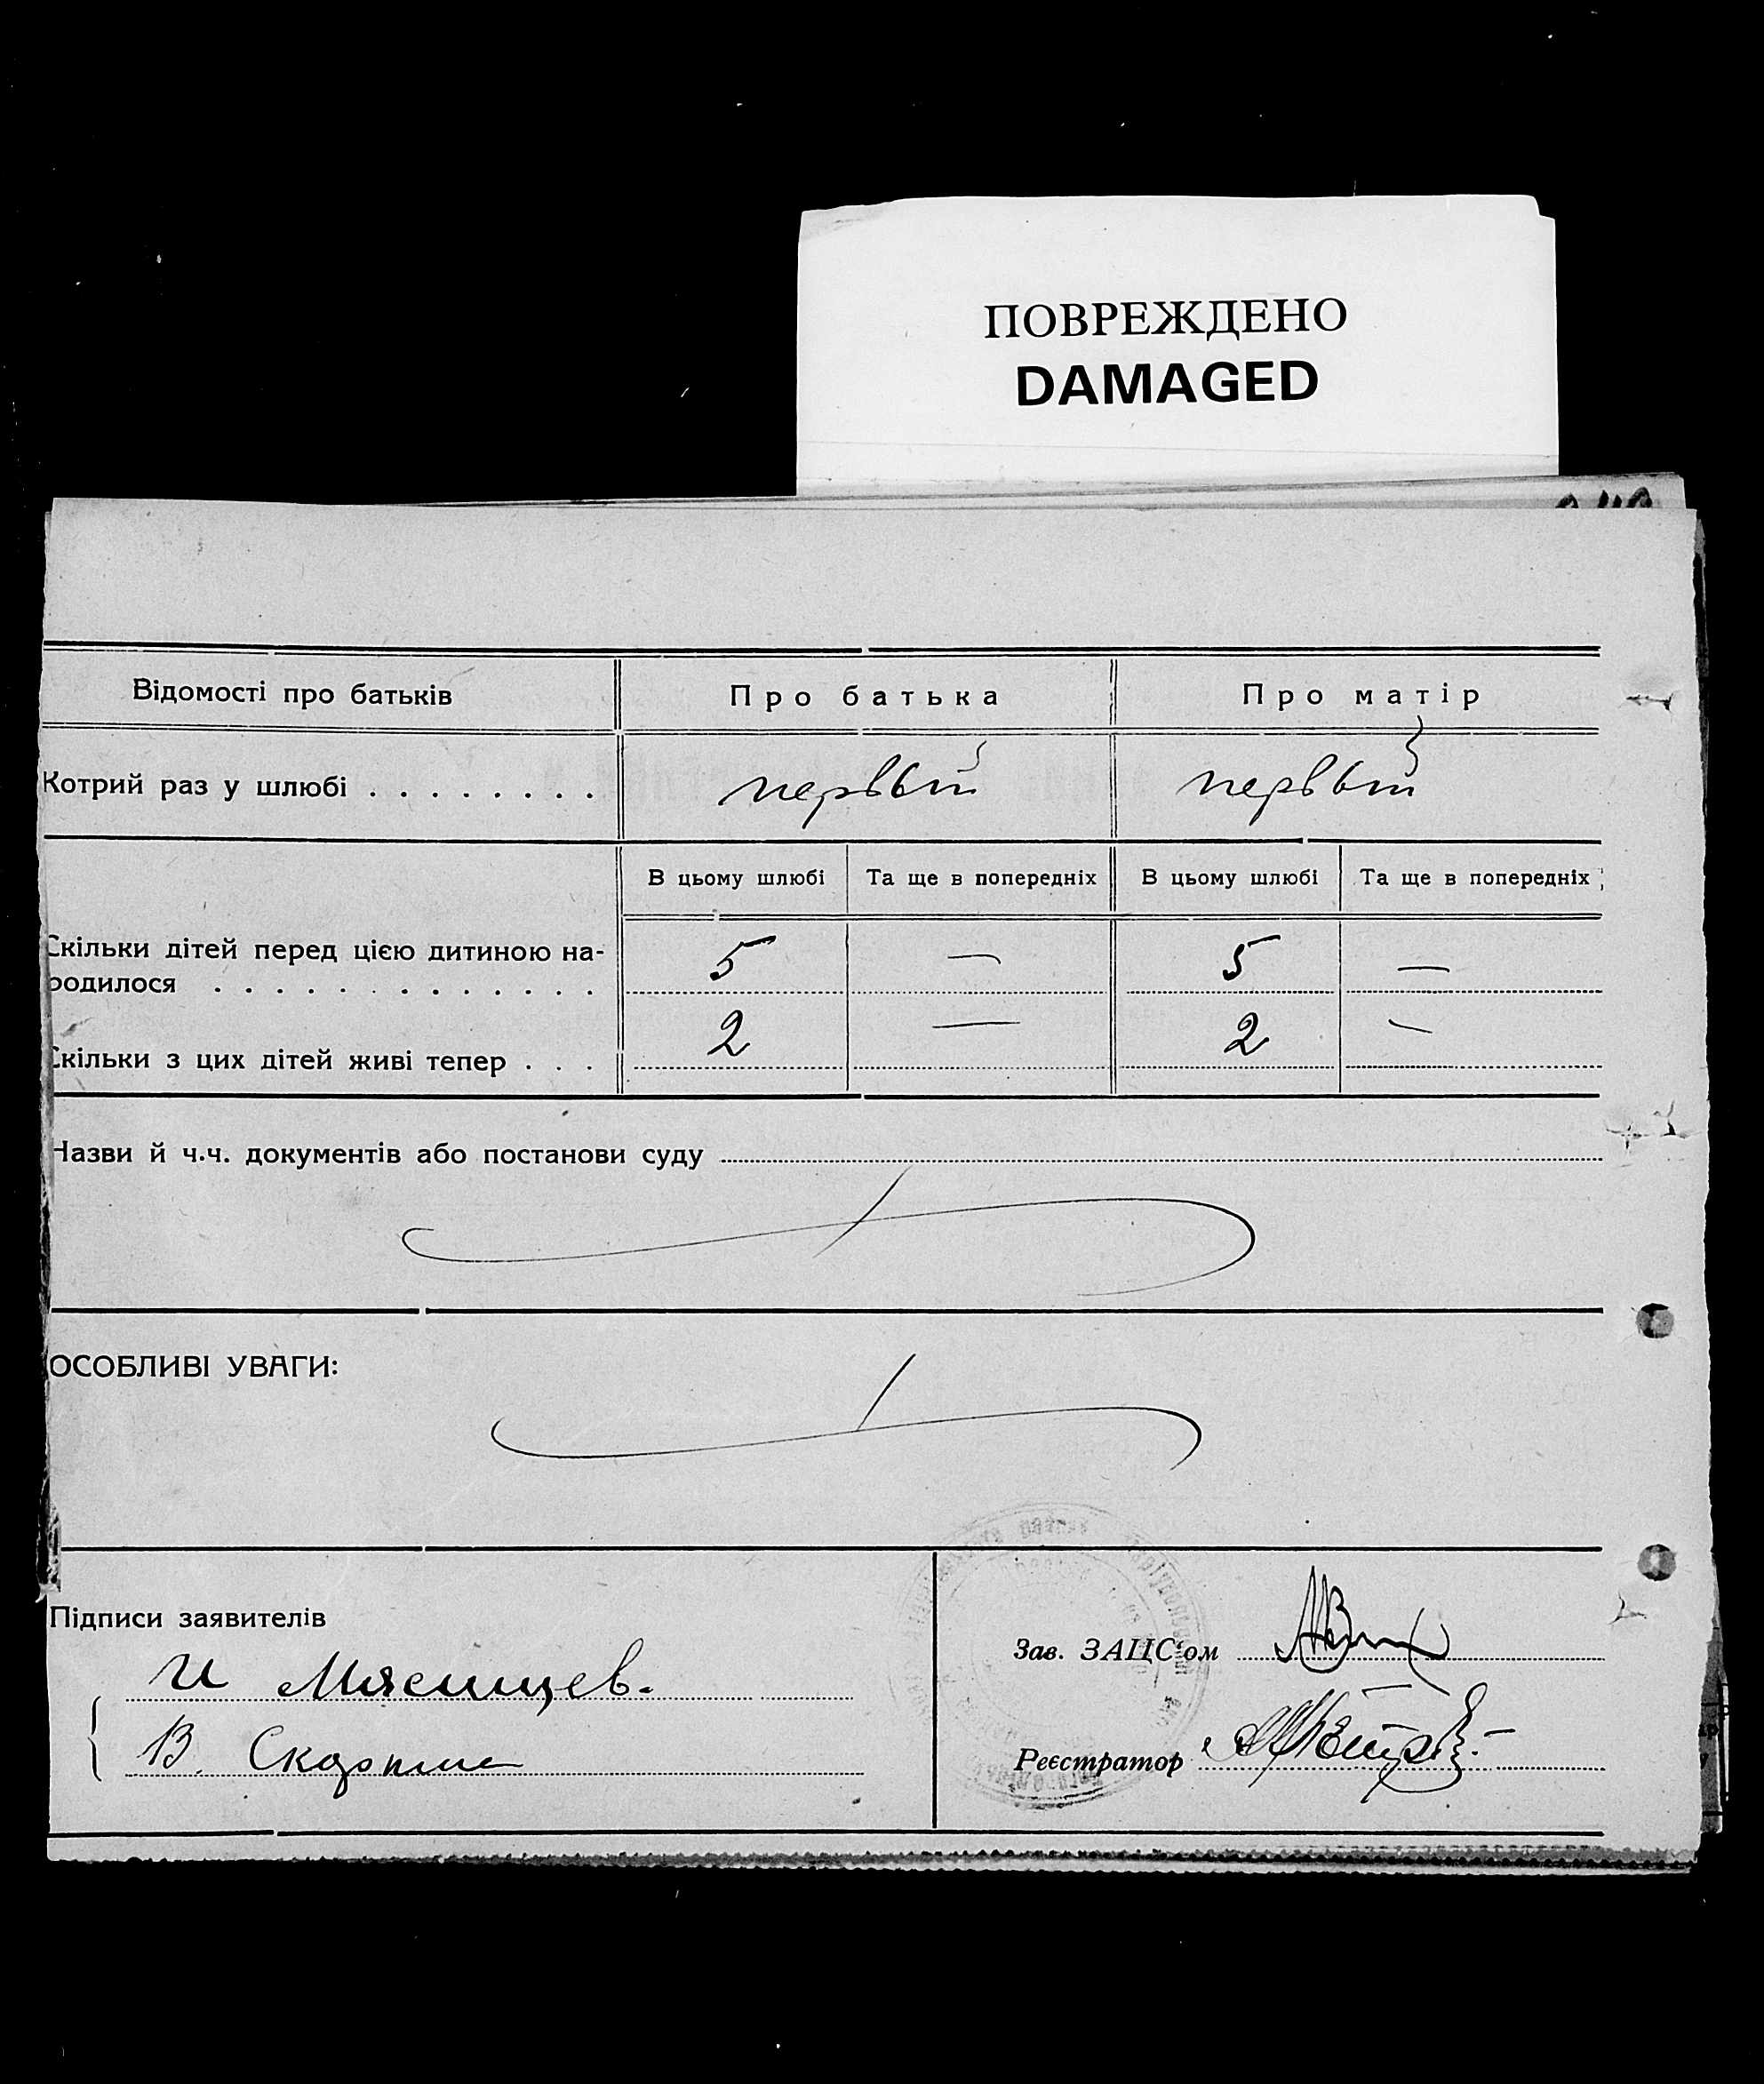 ПОВРЕЖДЕНО
DAMAGED
Відомості про батьків Про батька Про матір
Котрий раз у шлюбі . . . . . . . . первый первый
В цьому шлюбі Та ще в попередніх В цьому шлюбі Та ще в попередніх
Скільки дітей перед цією дитиною на-
родилося . . . . . . . . . . . . . 5 — 5 —
Скільки з цих дітей живі тепер . . . 2 — 2 —
Назви й ч.ч. документів або постанови суду
ОСОБЛИВІ УВАГИ:
Підписи заявителів
Зав. ЗАЦС'ом
И Мясищев.
В.
Реєстратор